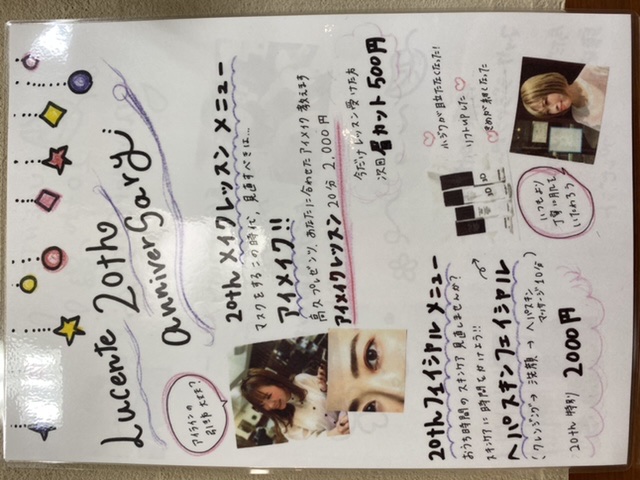 Lucente 20th
anniversary
20th メイクレッスン メニュー
マスクをするこの時代、見直すべきは…
アイメイク!!
高久プレゼンツ、あなたに合わせたアイメイク教えます
アイメイクレッスン 20分 2,000円
今だけレッスン受けた方
次回 眉カット 500円
アイラインの
引き方 大丈夫?
小ジワが目立たなくなった!
リフトupした
いつもより
丁寧に肌を
いたわろう
20th フェイシャル メニュー
おうち時間のスキンケア見直しませんか?
スキンケアに時間をかけよう!!
ヘパスキンフェイシャル
(クレンジング→洗顔→ヘパスキン
マッサージ10分)
20th 特別 2000円